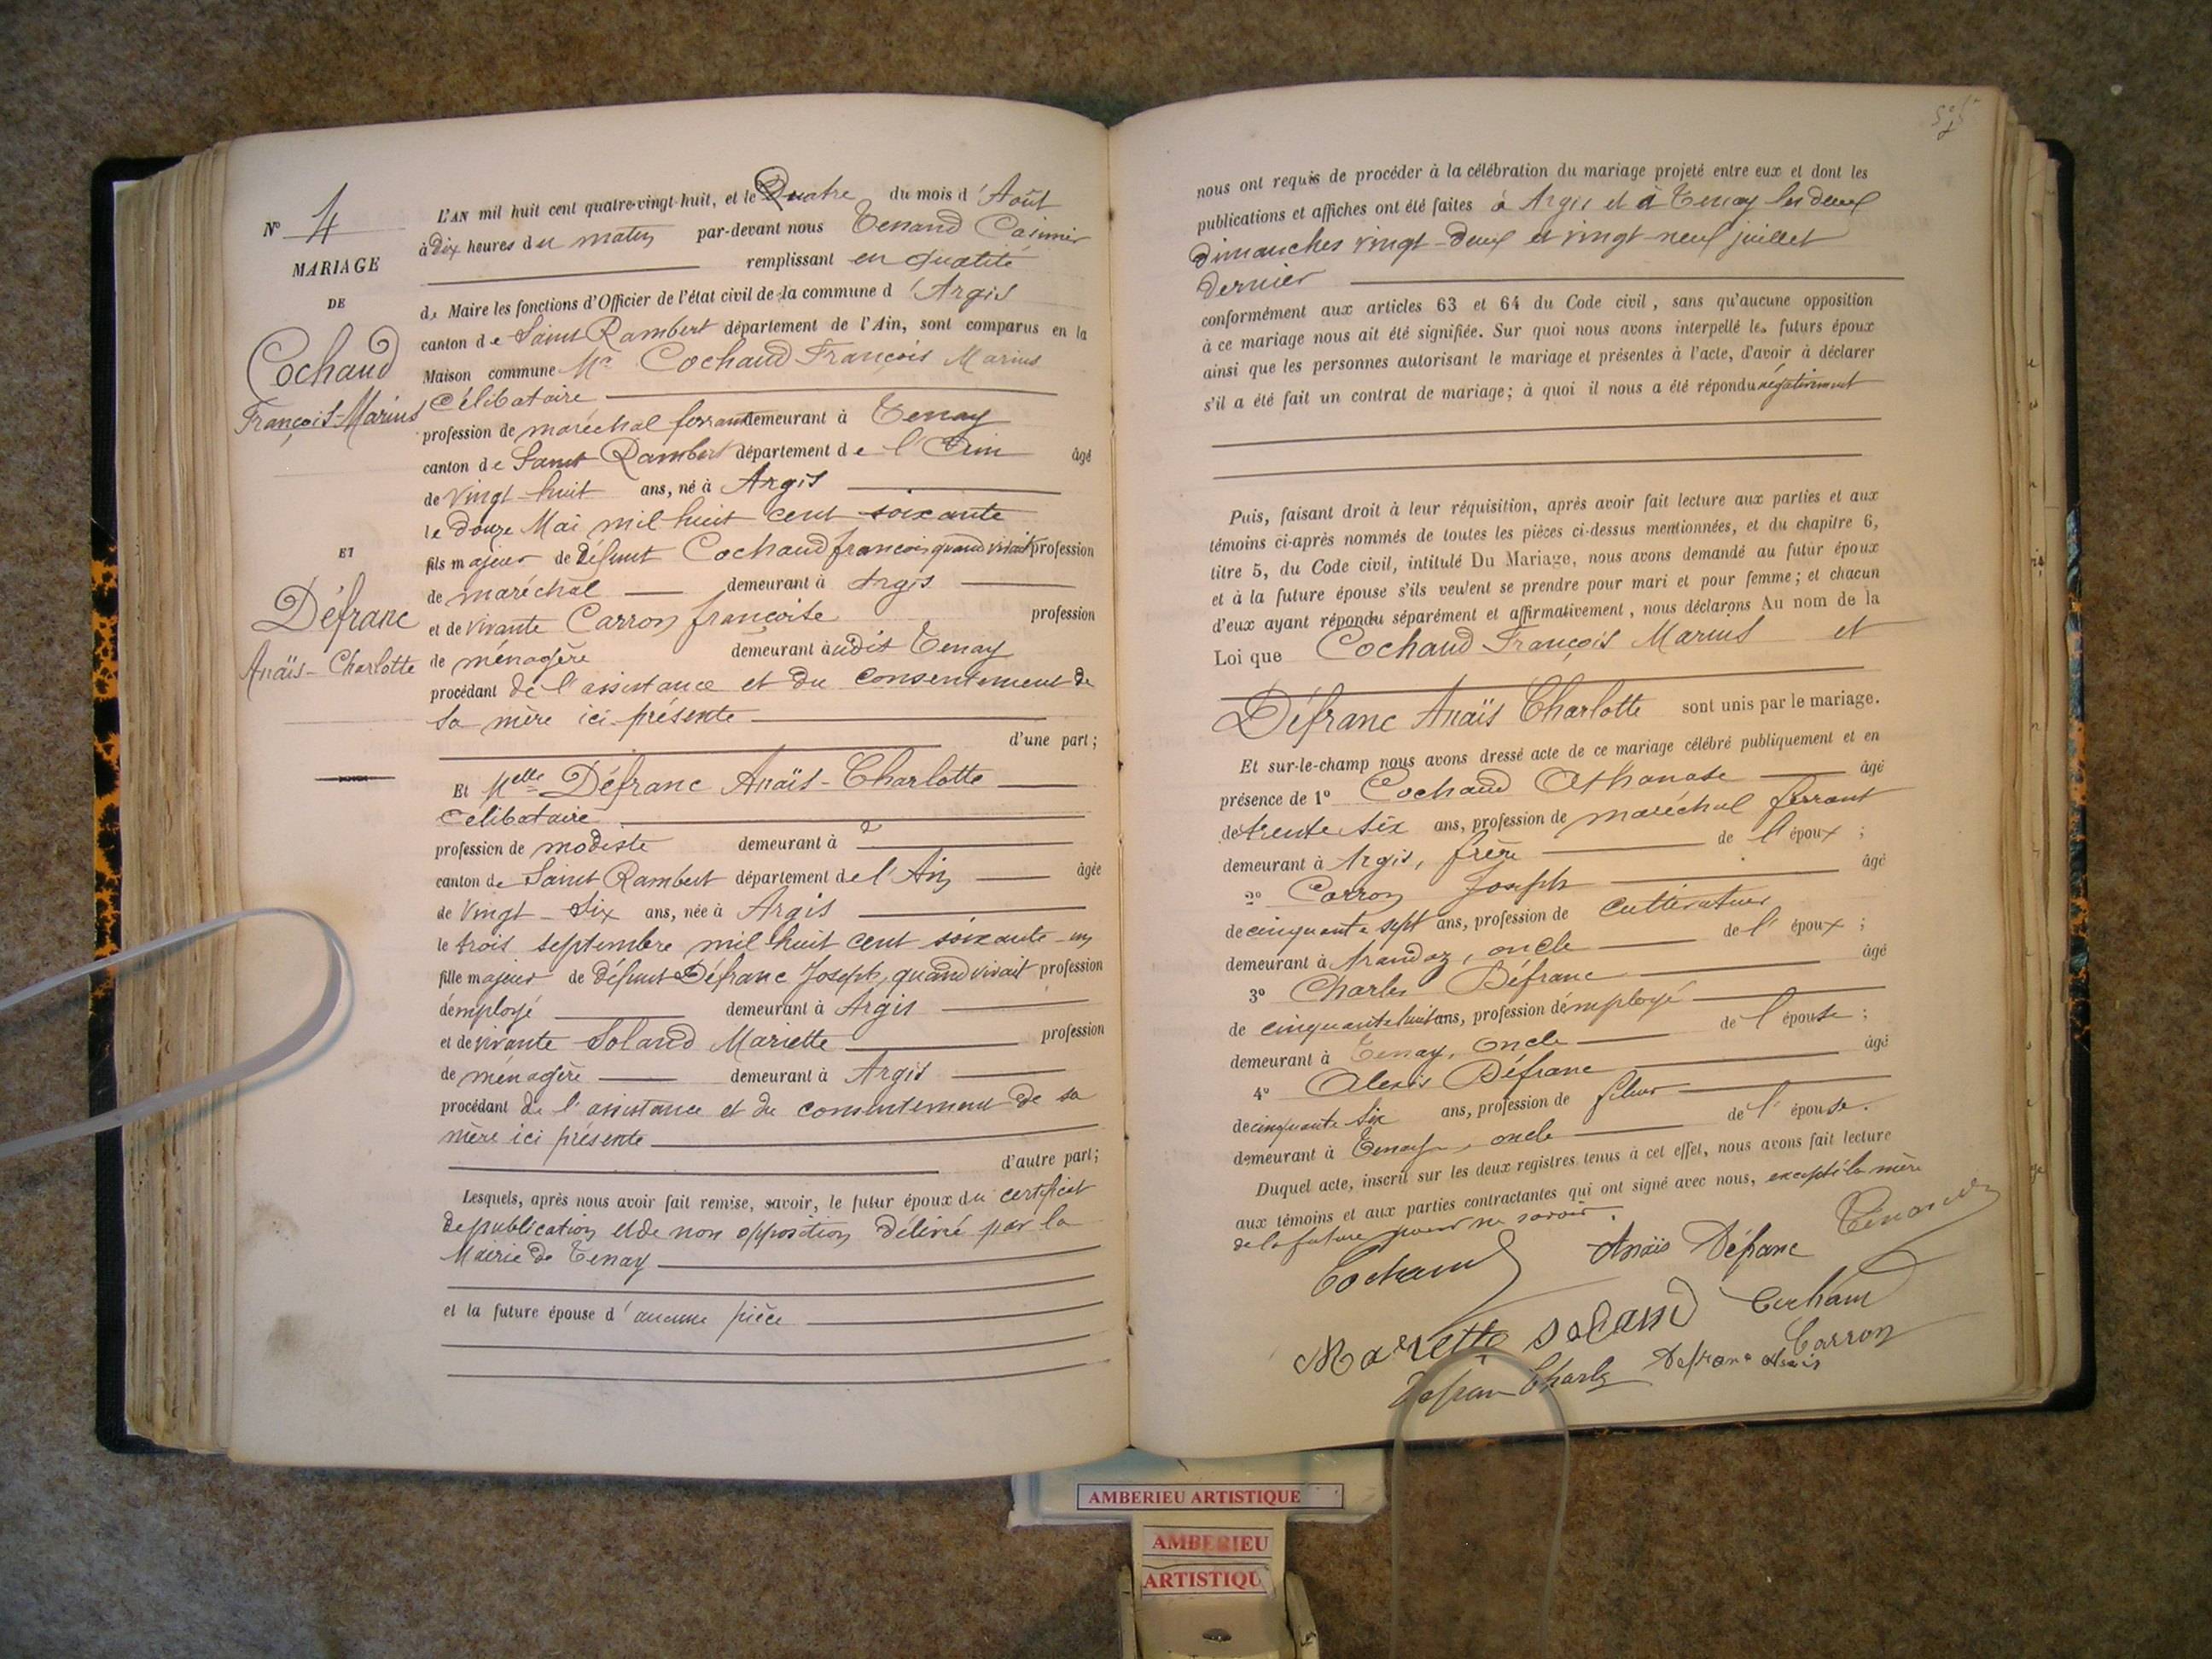 N° 4
MARIAGE
DE
Cochaud
François-Marius
ET
Défranc
Anaïs-Charlotte
L'AN mil huit cent quatre-vingt-huit, et le Quatre du mois d'Août
à Dix heures du matin par-devant nous Tenand Casimir
remplissant en qualité
de Maire les fonctions d'Officier de l'état civil de la commune d'Argis
canton de Saint Rambert département de l'Ain, sont comparus en la
Maison commune Mr Cochaud François Marius
Célibataire
profession de maréchal ferrant demeurant à Tenay
canton de Saint Rambert département de l'Ain âgé
de vingt-huit ans, né à Argis
le douze Mai mil huit cent soixante
fils majeur de défunt Cochaud françois quand vivait profession
de maréchal demeurant à Argis
et de vivante Carron françoise profession
de ménagère demeurant àudit Tenay
procédant de l'assistance et du consentement de
sa mère ici présente
d'une part;
Et Melle Défranc Anaïs-Charlotte
Célibataire
profession de modiste demeurant à d°
canton de Saint Rambert département de l'Ain âgée
de Vingt-Six ans, née à Argis
le trois septembre mil huit cent soixante-un
fille majeur de défunt Défranc Joseph, quand vivait profession
d'employé demeurant à Argis
et de vivante Soland Mariette profession
de ménagère demeurant à Argis
procédant de l'assistance et du consentement de sa
mère ici présente
d'autre part;
Lesquels, après nous avoir fait remise, savoir, le futur époux du certificat
de publication et de non opposition délivré par la
Mairie de Tenay
et la future épouse d'aucune pièce
nous ont requis de procéder à la célébration du mariage projeté entre eux et dont les
publications et affiches ont été faites à Argis et à Tenay les deux
dimanches vingt-deux et vingt-neuf juillet
dernier
conformément aux articles 63 et 64 du Code civil, sans qu'aucune opposition
à ce mariage nous ait été signifiée. Sur quoi nous avons interpellé les futurs époux
ainsi que les personnes autorisant le mariage et présentes à l'acte, d'avoir à déclarer
s'il a été fait un contrat de mariage; à quoi il nous a été répondu négativement
Puis, faisant droit à leur réquisition, après avoir fait lecture aux parties et aux
témoins ci-après nommés de toutes les pièces ci-dessus mentionnées, et du chapitre 6,
titre 5, du Code civil, intitulé Du Mariage, nous avons demandé au futur époux
et à la future épouse s'ils veulent se prendre pour mari et pour femme; et chacun
d'eux ayant répondu séparément et affirmativement, nous déclarons Au nom de la
Loi que Cochaud François Marius et
Défranc Anaïs Charlotte sont unis par le mariage.
Et sur-le-champ nous avons dressé acte de ce mariage célébré publiquement et en
présence de 1° Cochaud Athanase âgé
de trente six ans, profession de maréchal ferrant
demeurant à Argis, frère de l'époux;
2° Carron Joseph âgé
de cinquante sept ans, profession de cultivateur
demeurant à Arandaz, oncle de l'époux;
3° Charles Défranc âgé
de cinquante huit ans, profession d'employé
demeurant à Tenay, oncle de l'épouse;
4° Alexis Défranc âgé
de cinquante six ans, profession de fileur
demeurant à Tenay, oncle de l'épouse.
Duquel acte, inscrit sur les deux registres tenus à cet effet, nous avons fait lecture
aux témoins et aux parties contractantes qui ont signé avec nous, excepté la mère
de la future pour ne savoir.
Cochaud Anaïs Défranc Tenand
Mariette Soland Cochaud
Carron
Défran Charle Défranc Alexis
AMBERIEU ARTISTIQUE
AMBERIEU
ARTISTIQU